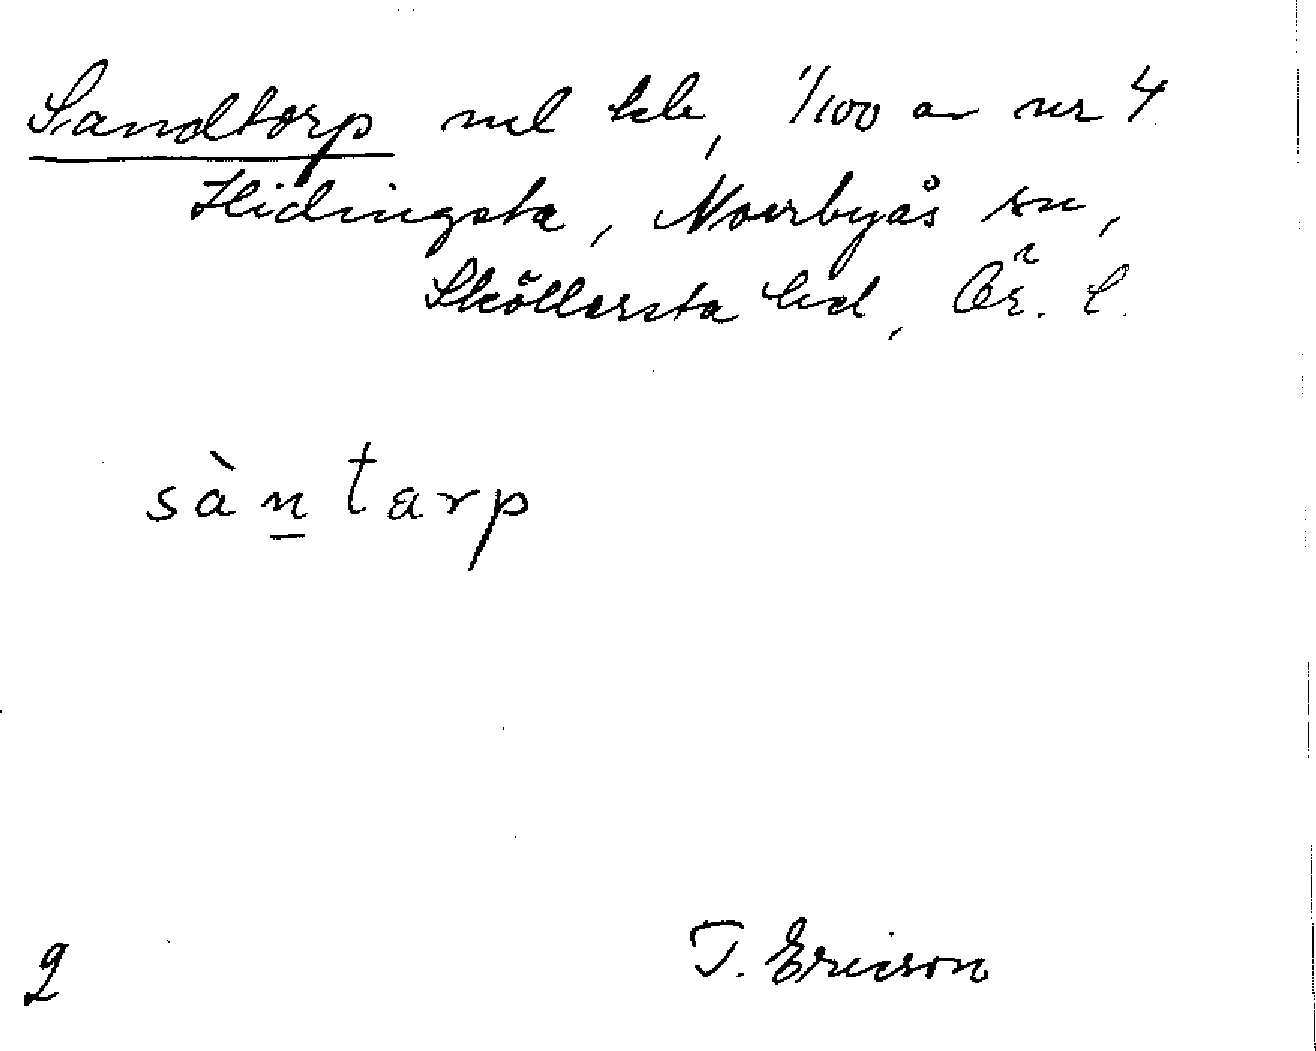 Sandtorp nel hde, 1/100 av nr 4
Hidingsta, Norrbyås sn,
Sköllersta hd, Ör. l.
sàn̲tarp
2 T. Ericson